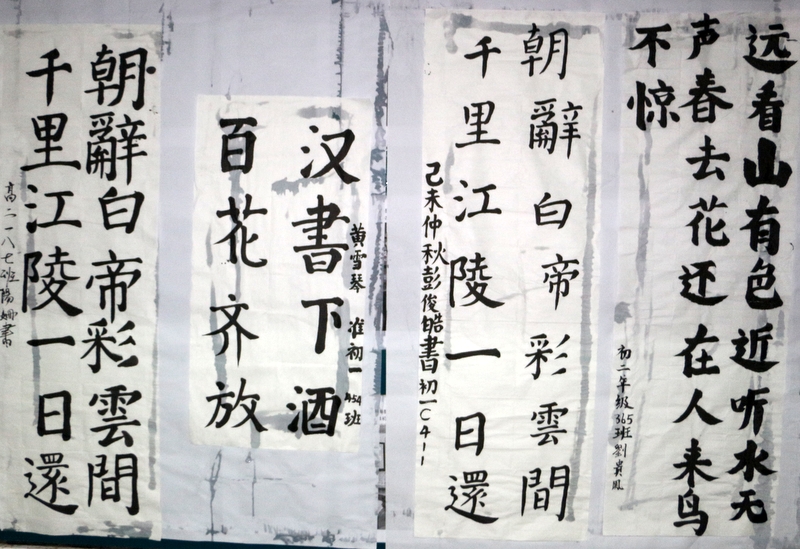 远看山有色近听水无
声春去花还在人来鸟
不惊
初二年级365班劉貴鳳
朝辭白帝彩雲間
千里江陵一日還
己未仲秋彭俊皓書初一〇411
汉書下酒
百花齐放
黄雪琴 准初一 434班
朝辭白帝彩雲間
千里江陵一日還
高二一八七班陽姗書